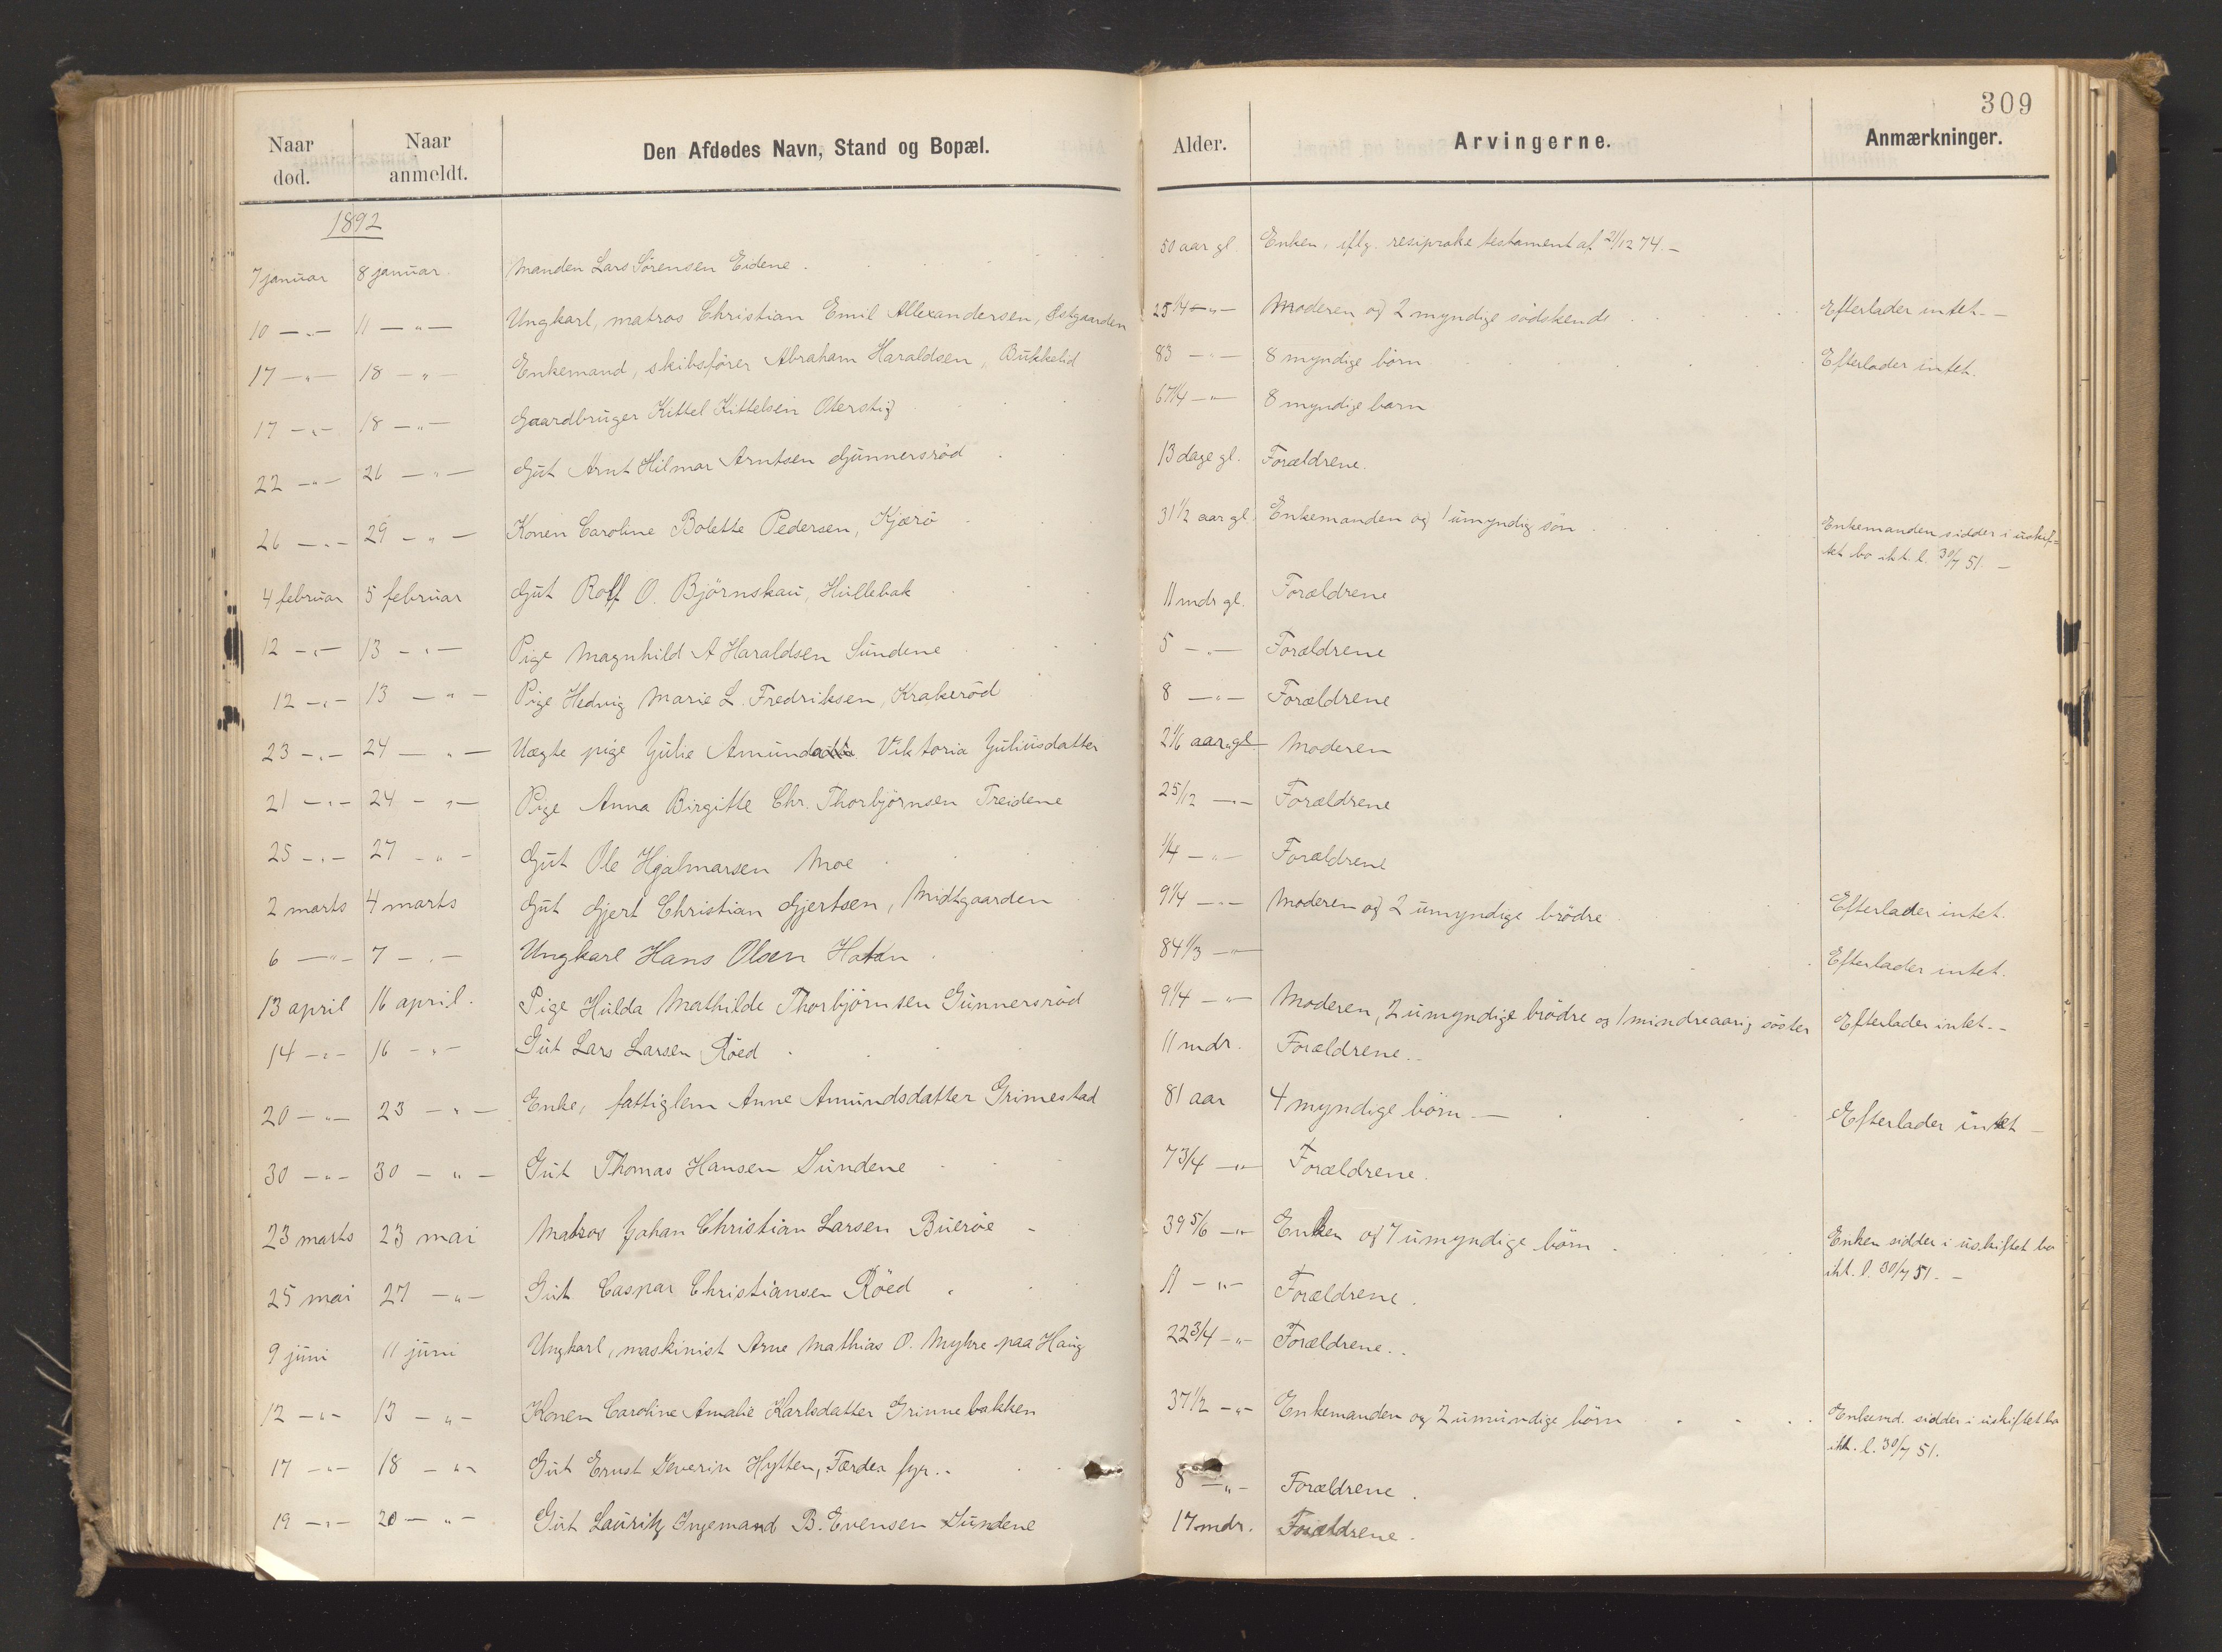 309
Naar død. Naar anmeldt. Den Afdødes Navn, Stand og Bopæl. Alder. Arvingerne. Anmærkninger.
1892
7 januar 8 januar. Manden Lars Sörensen Eidene. 50 aar gl. Enken, iflg. resiproke testament af 21/12 74. –
10 –"– 11 –"– Ungkarl, matros Christian Emil Allexandersen, Østgaarden 25 1/4 –"– Moderen og 2 myndige södskende Efterlader intet. –
17 –"– 18 –"– Enkemand, skibsförer Abraham Haraldsen, Bukkelid 83 –"– 8 myndige börn Efterlader intet.
17 –"– 18 –"– Gaardbruger Kittel Kittelsen Oterstig 67 1/4 –"– 8 myndige barn
22 –"– 26 –"– Gut Arnt Hilmar Arntsen Gunnersröd 13 dage gl. Forældrene.
26 –"– 29 –"– Konen Caroline Bolette Pedersen, Kjærö 31 1/2 aar gl. Enkemanden og 1 umyndig sön Enkemanden sidder i uskif=
tet bo iht. l. 30/7 51. –
4 februar 5 februar Gut Rolf O. Björnskau, Hullebak 11 mdr gl. Forældrene
12 –"– 13 –"– Pige Magnhild A Haraldsen Sundene 5 –"– Forældrene
12 –"– 13 –"– Pige Hedvig Marie L. Fredriksen, Krakeröd 8 –"– Forældrene
23 –"– 24 –"– Uægte pige Julie Amundatta Viktoria Juliusdatter 2 1/6 aar gl. Moderen
21 –"– 24 –"– Pige Anna Birgitte Chr. Thorbjörnsen Treidene 2 5/12 –"– Forældrene
25 –"– 27 –"– Gut Ole Hjalmarsen Moe 1/4 –"– Forældrene
2 marts 4 marts Gut Gjert Christian Gjertsen, Midtgaarden 9 1/4 –"– Moderen og 2 umyndige brödre Efterlader intet.
6 –"– 7 –"– Ungkarl Hans Olsen 84 1/3 –"– Efterlader intet.
13 april 16 april. Pige Hulda Mathilde Thorbjörnsen Gunnersröd 9 1/4 –"– Moderen, 2 umyndige brödre og 1 mindreaarig söster Efterlader intet. –
14 –"– 16 –"– Gut Lars Larsen Röed 11 mdr. Forældrene.
20 –"– 23 –"– Enke, fattiglem Anne Amundsdatter Grimestad 81 aar 4 myndige börn – Efterlader intet –
30 –"– 30 –"– Gut Thomas Hansen Sundene 7 3/4 –"– Forældrene.
23 marts 23 mai Matros Johan Christian Larsen Bueröe – 39 5/6 –"– Enken og 7 umyndige börn Enken sidder i uskiftet bo
iht. l. 30/7 51. –
25 mai 27 –"– Gut Caspar Christiansen Röed 11 –"– Forældrene.
9 juni 11 juni Ungkarl, maskinist Arne Mathias O. Myhre paa Haug 22 3/4 –"– Forældrene.
12 –"– 13 –"– Konen Caroline Amalie Karlsdatter Grinnebakken 37 1/2 –"– Enkemanden og 2 umundige börn Enkemd. sidder i uskiftet bo
iht. l. 30/7 51.
17 –"– 18 –"– Gut Ernst Severin Hytten, Færder fyr. 8 –"– Forældrene.
19 –"– 20 –"– Gut Lauritz Ingemand B. Evensen Sundene 17 mdr. Forældrene.